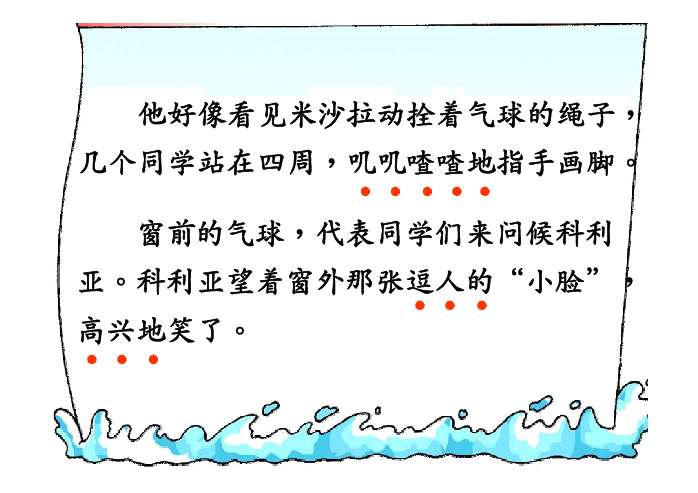 他好像看见米沙拉动拴着气球的绳子，
几个同学站在四周，叽叽喳喳地指手画脚。
窗前的气球，代表同学们来问候科利
亚。科利亚望着窗外那张逗人的“小脸”，
高兴地笑了。